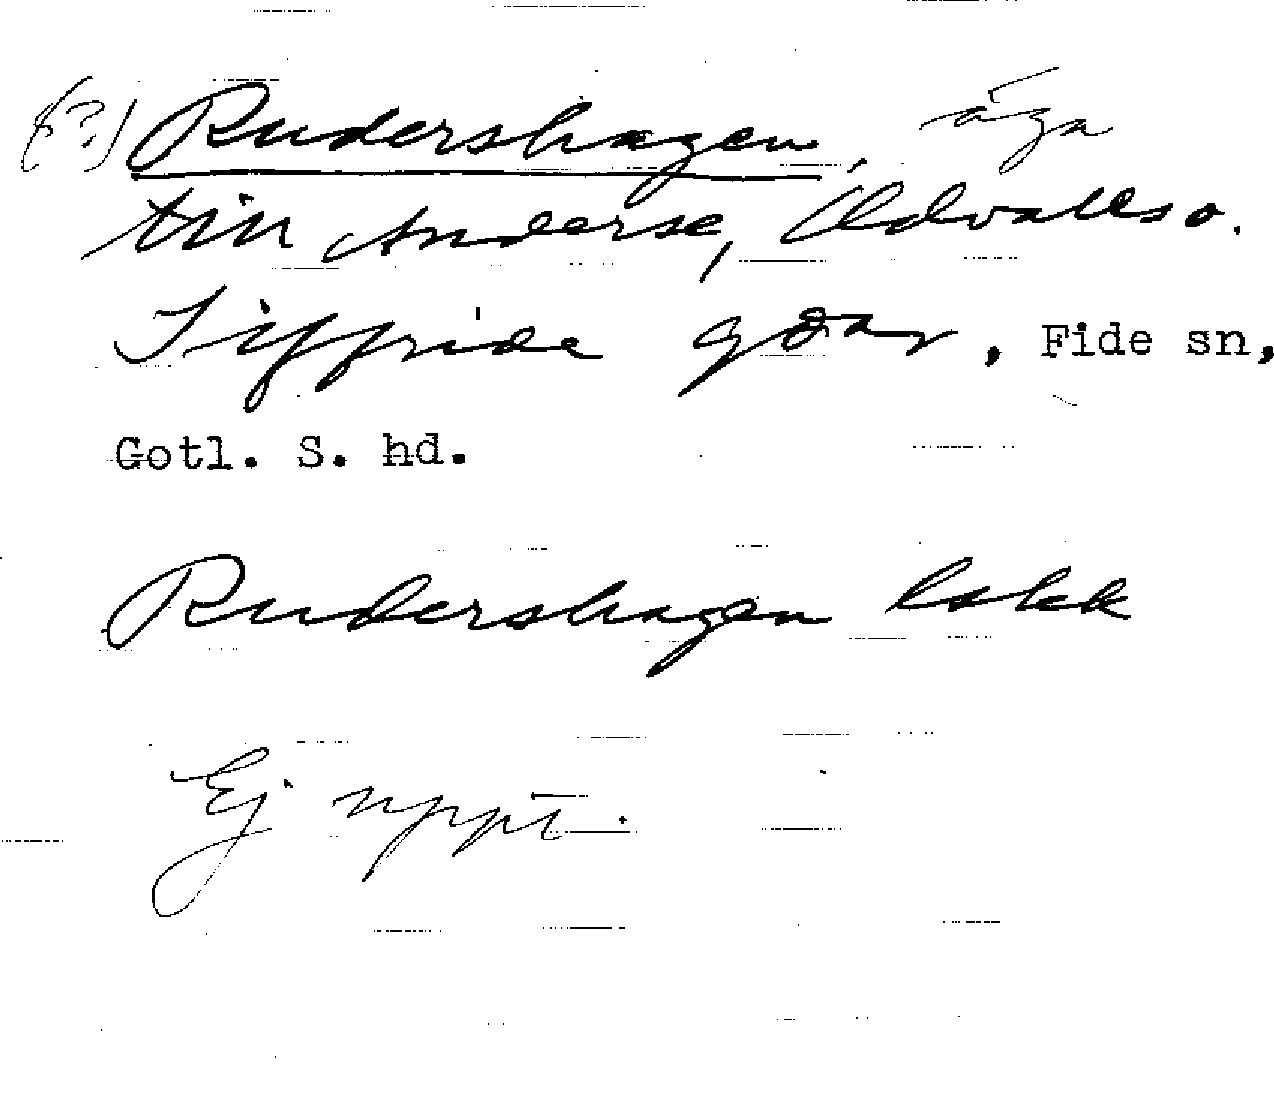 (?) Rudershagen, äga
till Anderse, Odvalls o.
Siffride gdar, Fide sn,
Gotl. S. hd.
Rudershagen
Ej uppt.